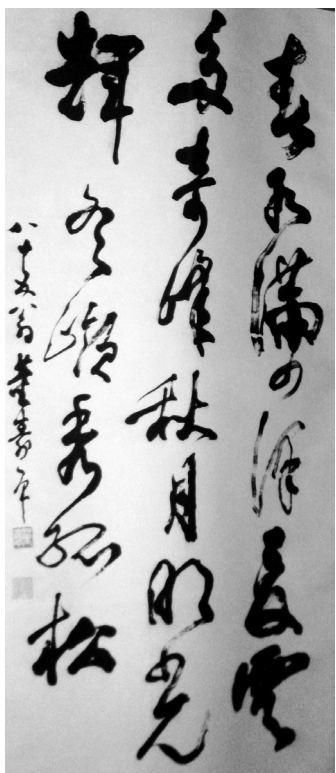 春水滿四澤夏雲
多奇峰秋月明光
輝冬嶺秀孤松
八十五翁董壽平